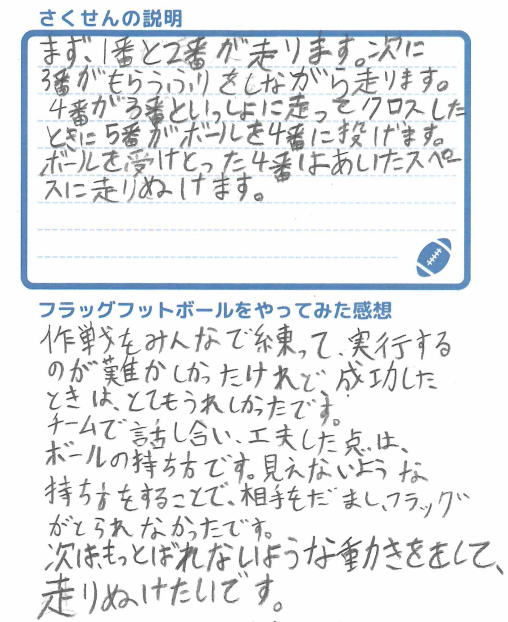 さくせんの説明
まず、1番と2番が走ります。次に
3番がもらうふりをしながら走ります。
4番が3番といっしょに走ってクロスした
ときに5番がボールを4番に投げます。
ボールを受けとった4番はあいたスペー
スに走りぬけます。
フラッグフットボールをやってみた感想
作戦をみんなで練って、実行する
のが難かしかったけれど、成功した
ときは、とてもうれしかったです。
チームで話し合い、工夫した点は、
ボールの持ち方です。見えないような
持ち方をすることで、相手をだまし、フラッグ
がとられなかったです。
次は、もっとばれないような動きををして、
走りぬけたいです。